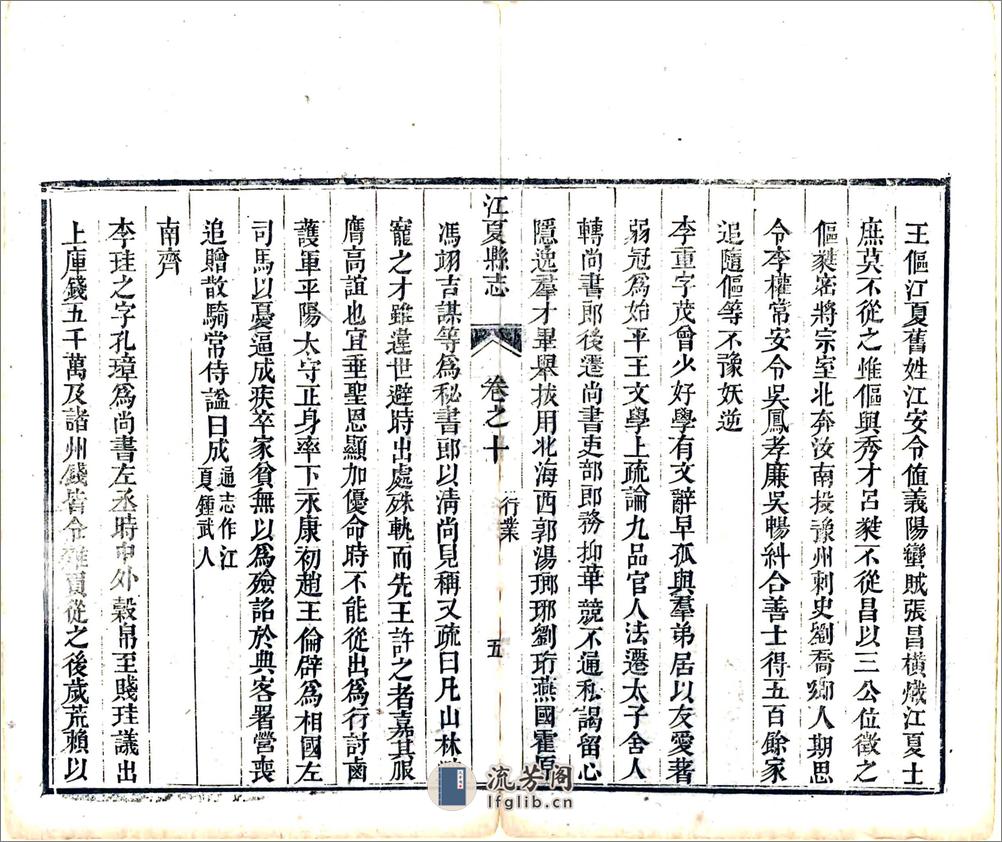 王傴江夏舊姓江安令值義陽蠻賊張昌橫熾江夏士
庶莫不從之惟傴與秀才呂㽔不從昌以三公位徵之
傴㽔密將宗室北奔汝南投豫州刺史劉喬鄉人期思
令李權常安令吳鳳孝廉吳暢糾合善士得五百餘家
追隨傴等不豫妖逆
李重字茂曾少好學有文辭早孤與羣弟居以友愛著
弱冠為始平王文學上疏論九品官人法遷太子舍人
轉尚書郎後遷尚書吏部郎務抑華競不通私謁留心
隱逸羣才畢舉拔用北海西郭湯瑯琊劉珩燕國霍原
江夏縣志 卷之十 行業 五
馮翊吉謀等爲秘書郎以清尚見稱又疏曰凡山林
寵之才雖違世避時出處殊軌而先王許之者嘉其服
膺高誼也宜垂聖恩顯加優命時不能從出爲行討虜
護軍平陽太守正身率下永康初趙王倫辟爲相國左
司馬以憂逼成疾卒家貧無以爲殮詔於典客署營喪
追贈散騎常侍謚曰成 通志作江夏鍾武人
南齊
李珪之字孔璋爲尚書左丞時中外穀帛至賤珪議出
上庫錢五千萬及諸州錢皆令糴買從之後歲荒賴以
流芳閣
lfglib.cn